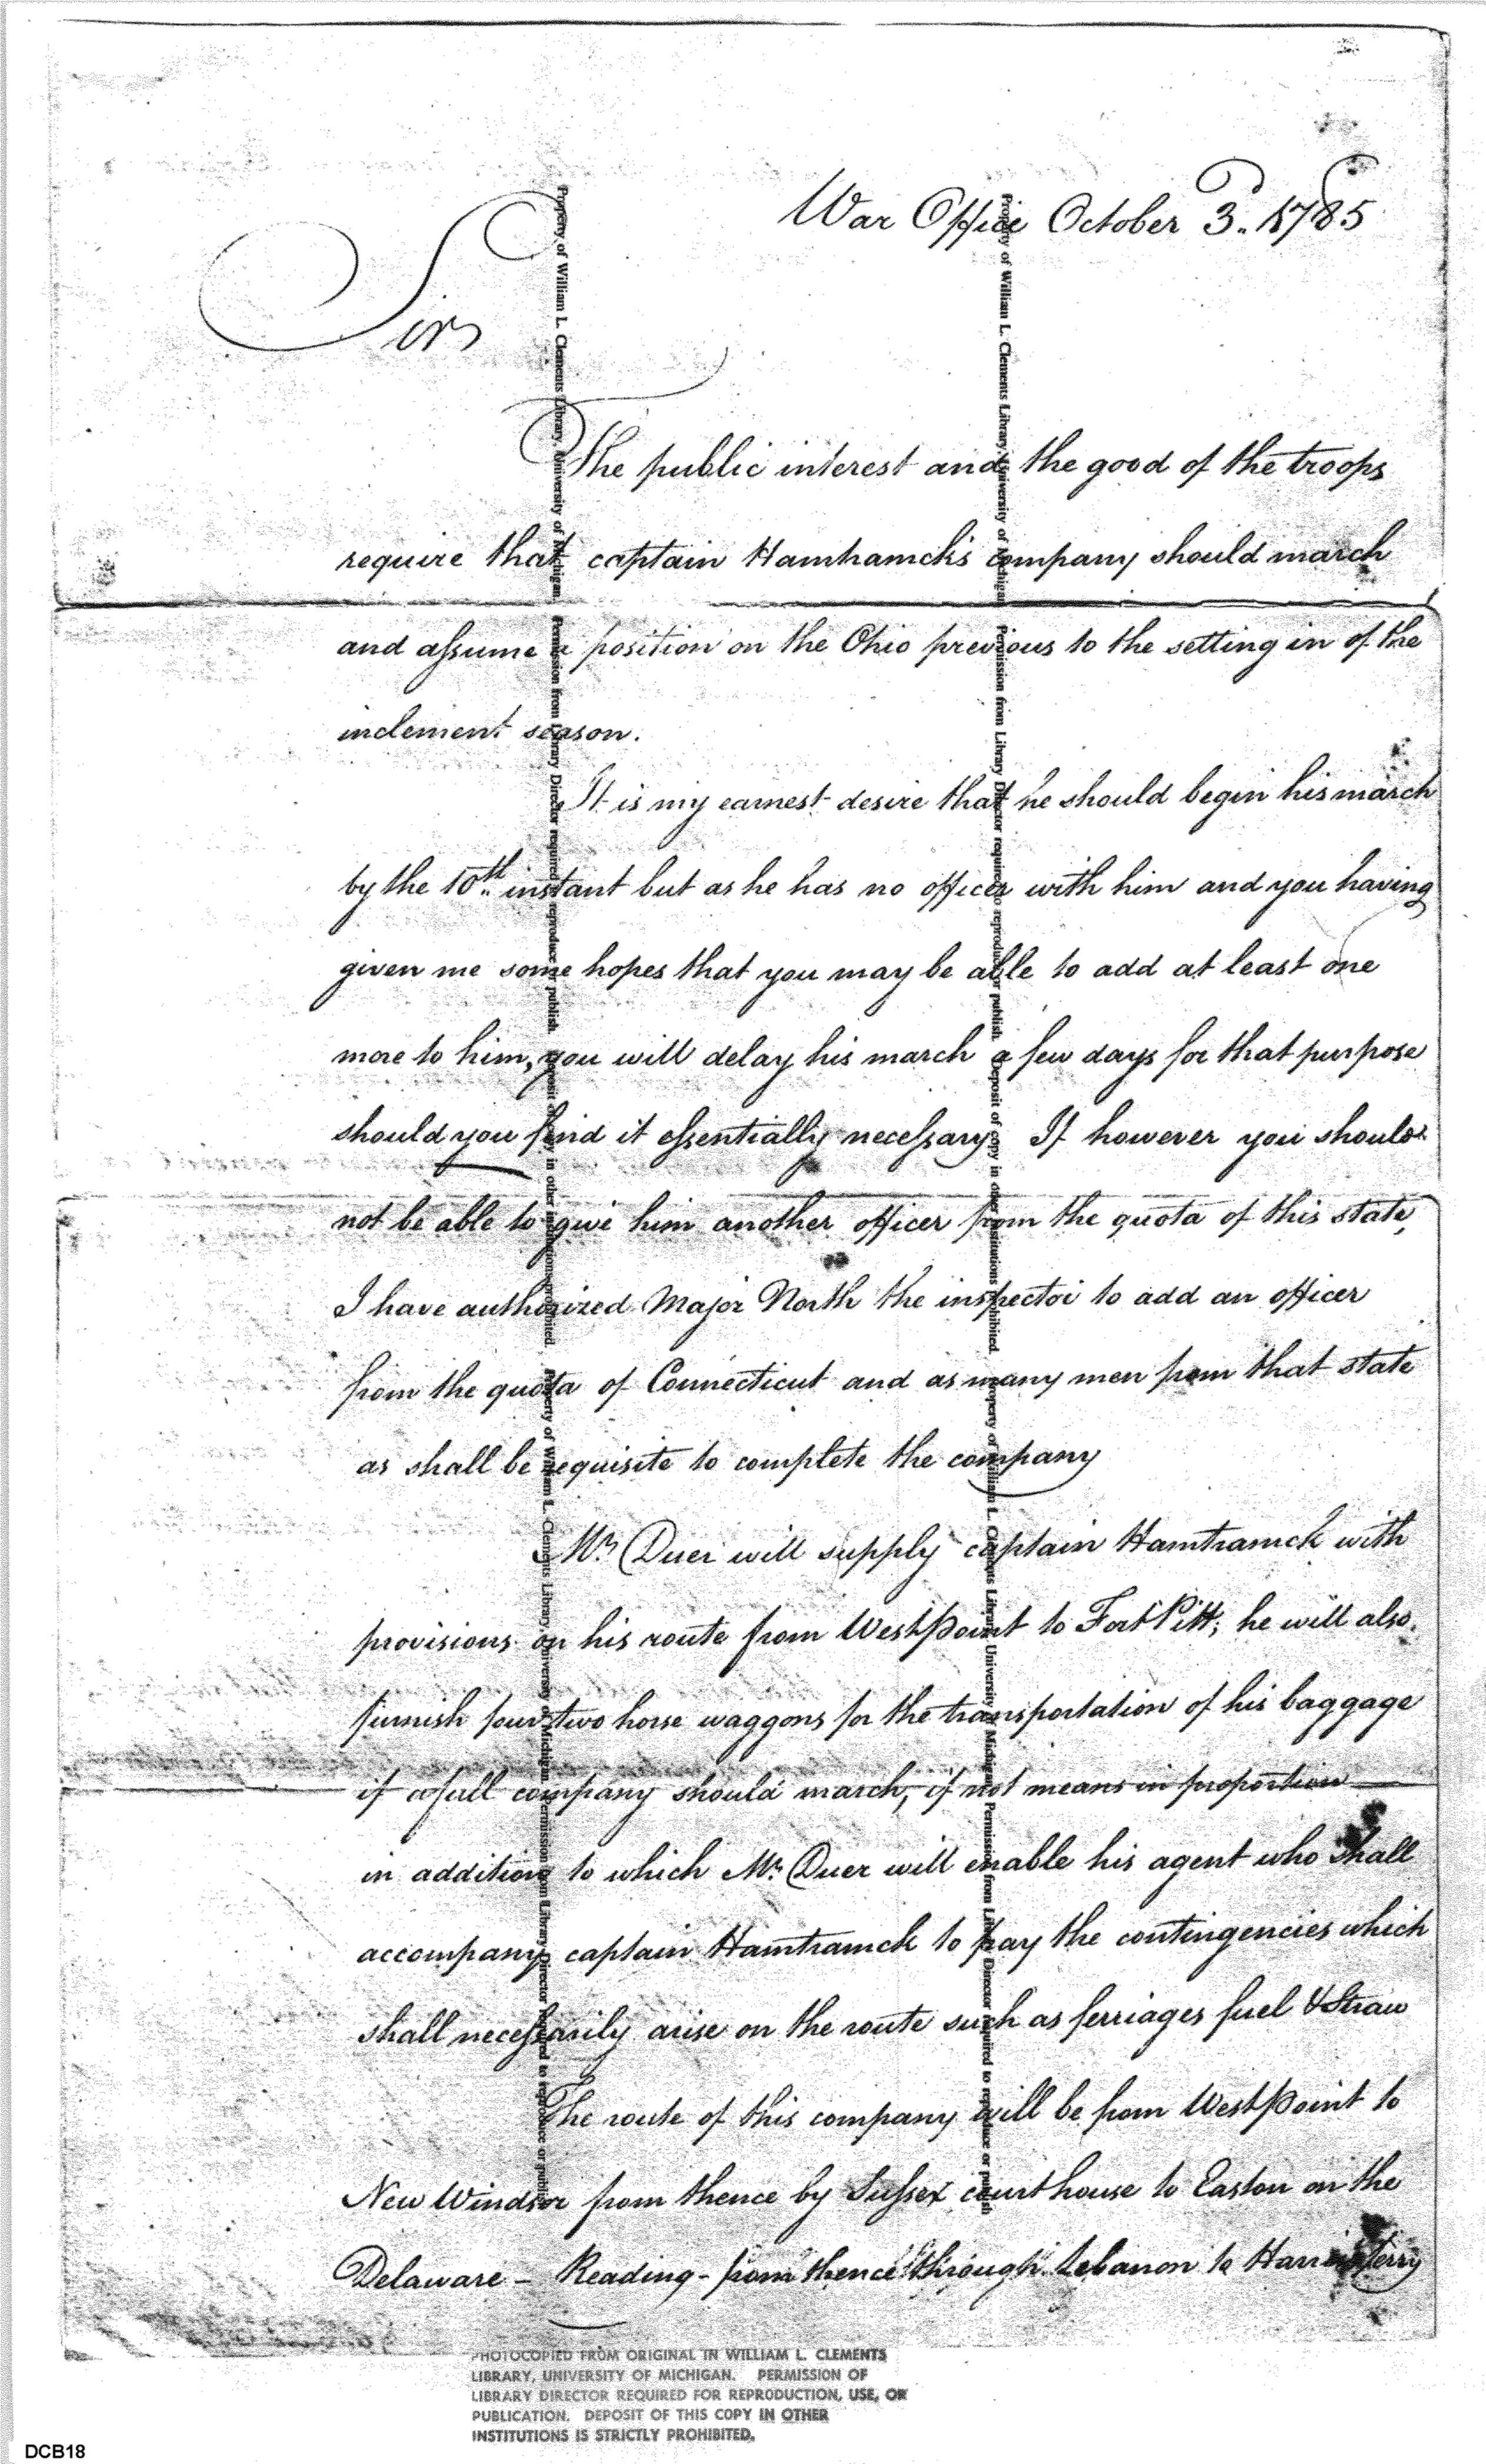 War Office October 3.. 1785
Sir
The public interest and the good of the troops
require that captain Hamhamck's company should march
and assume a position on the Ohio previous to the setting in of the
inclement season.
It is my earnest desire that he should begin his march
by the 10th instant but as he has no officer with him and you having
given me some hopes that you may be able to add at least one
more to him, you will delay his march a few days for that purpose
should you find it essentially necessary. If however you should
not be able to give him another officer from the quota of this state,
I have authorized Major North the inspector to add an officer
from the quota of Connecticut and as many men from that state
as shall be requisite to complete the company
Mr Duer will supply captain Hamtramck with
provisions on his route from West Point to Fort Pitt; he will also
furnish four two horse waggons for the transportation of his baggage
if a full company should march, if not means in proportion
in addition to which Mr Duer will enable his agent who shall
accompany captain Hamtramck to pay the contingencies which
shall necessarily arise on the route such as ferriages fuel & straw
The route of this company will be from West Point to
New Windsor from thence by Sussex court house to Easton on the
Delaware - Reading - from thence through Lebanon to Harris ferry
Property of William L. Clements Library, University of Michigan. Permission from Library Director required to reproduce or publish. Deposit of copy in other institutions prohibited. Property of William L. Clements Library, University of Michigan. Permission from Library Director required to reproduce or publish
Property of William L. Clements Library, University of Michigan. Permission from Library Director required to reproduce or publish. Deposit of copy in other institutions prohibited. Property of William L. Clements Library, University of Michigan. Permission from Library Director required to reproduce or publish
PHOTOCOPIED FROM ORIGINAL IN WILLIAM L. CLEMENTS
LIBRARY, UNIVERSITY OF MICHIGAN. PERMISSION OF
LIBRARY DIRECTOR REQUIRED FOR REPRODUCTION, USE, OR
PUBLICATION. DEPOSIT OF THIS COPY IN OTHER
INSTITUTIONS IS STRICTLY PROHIBITED.
DCB18